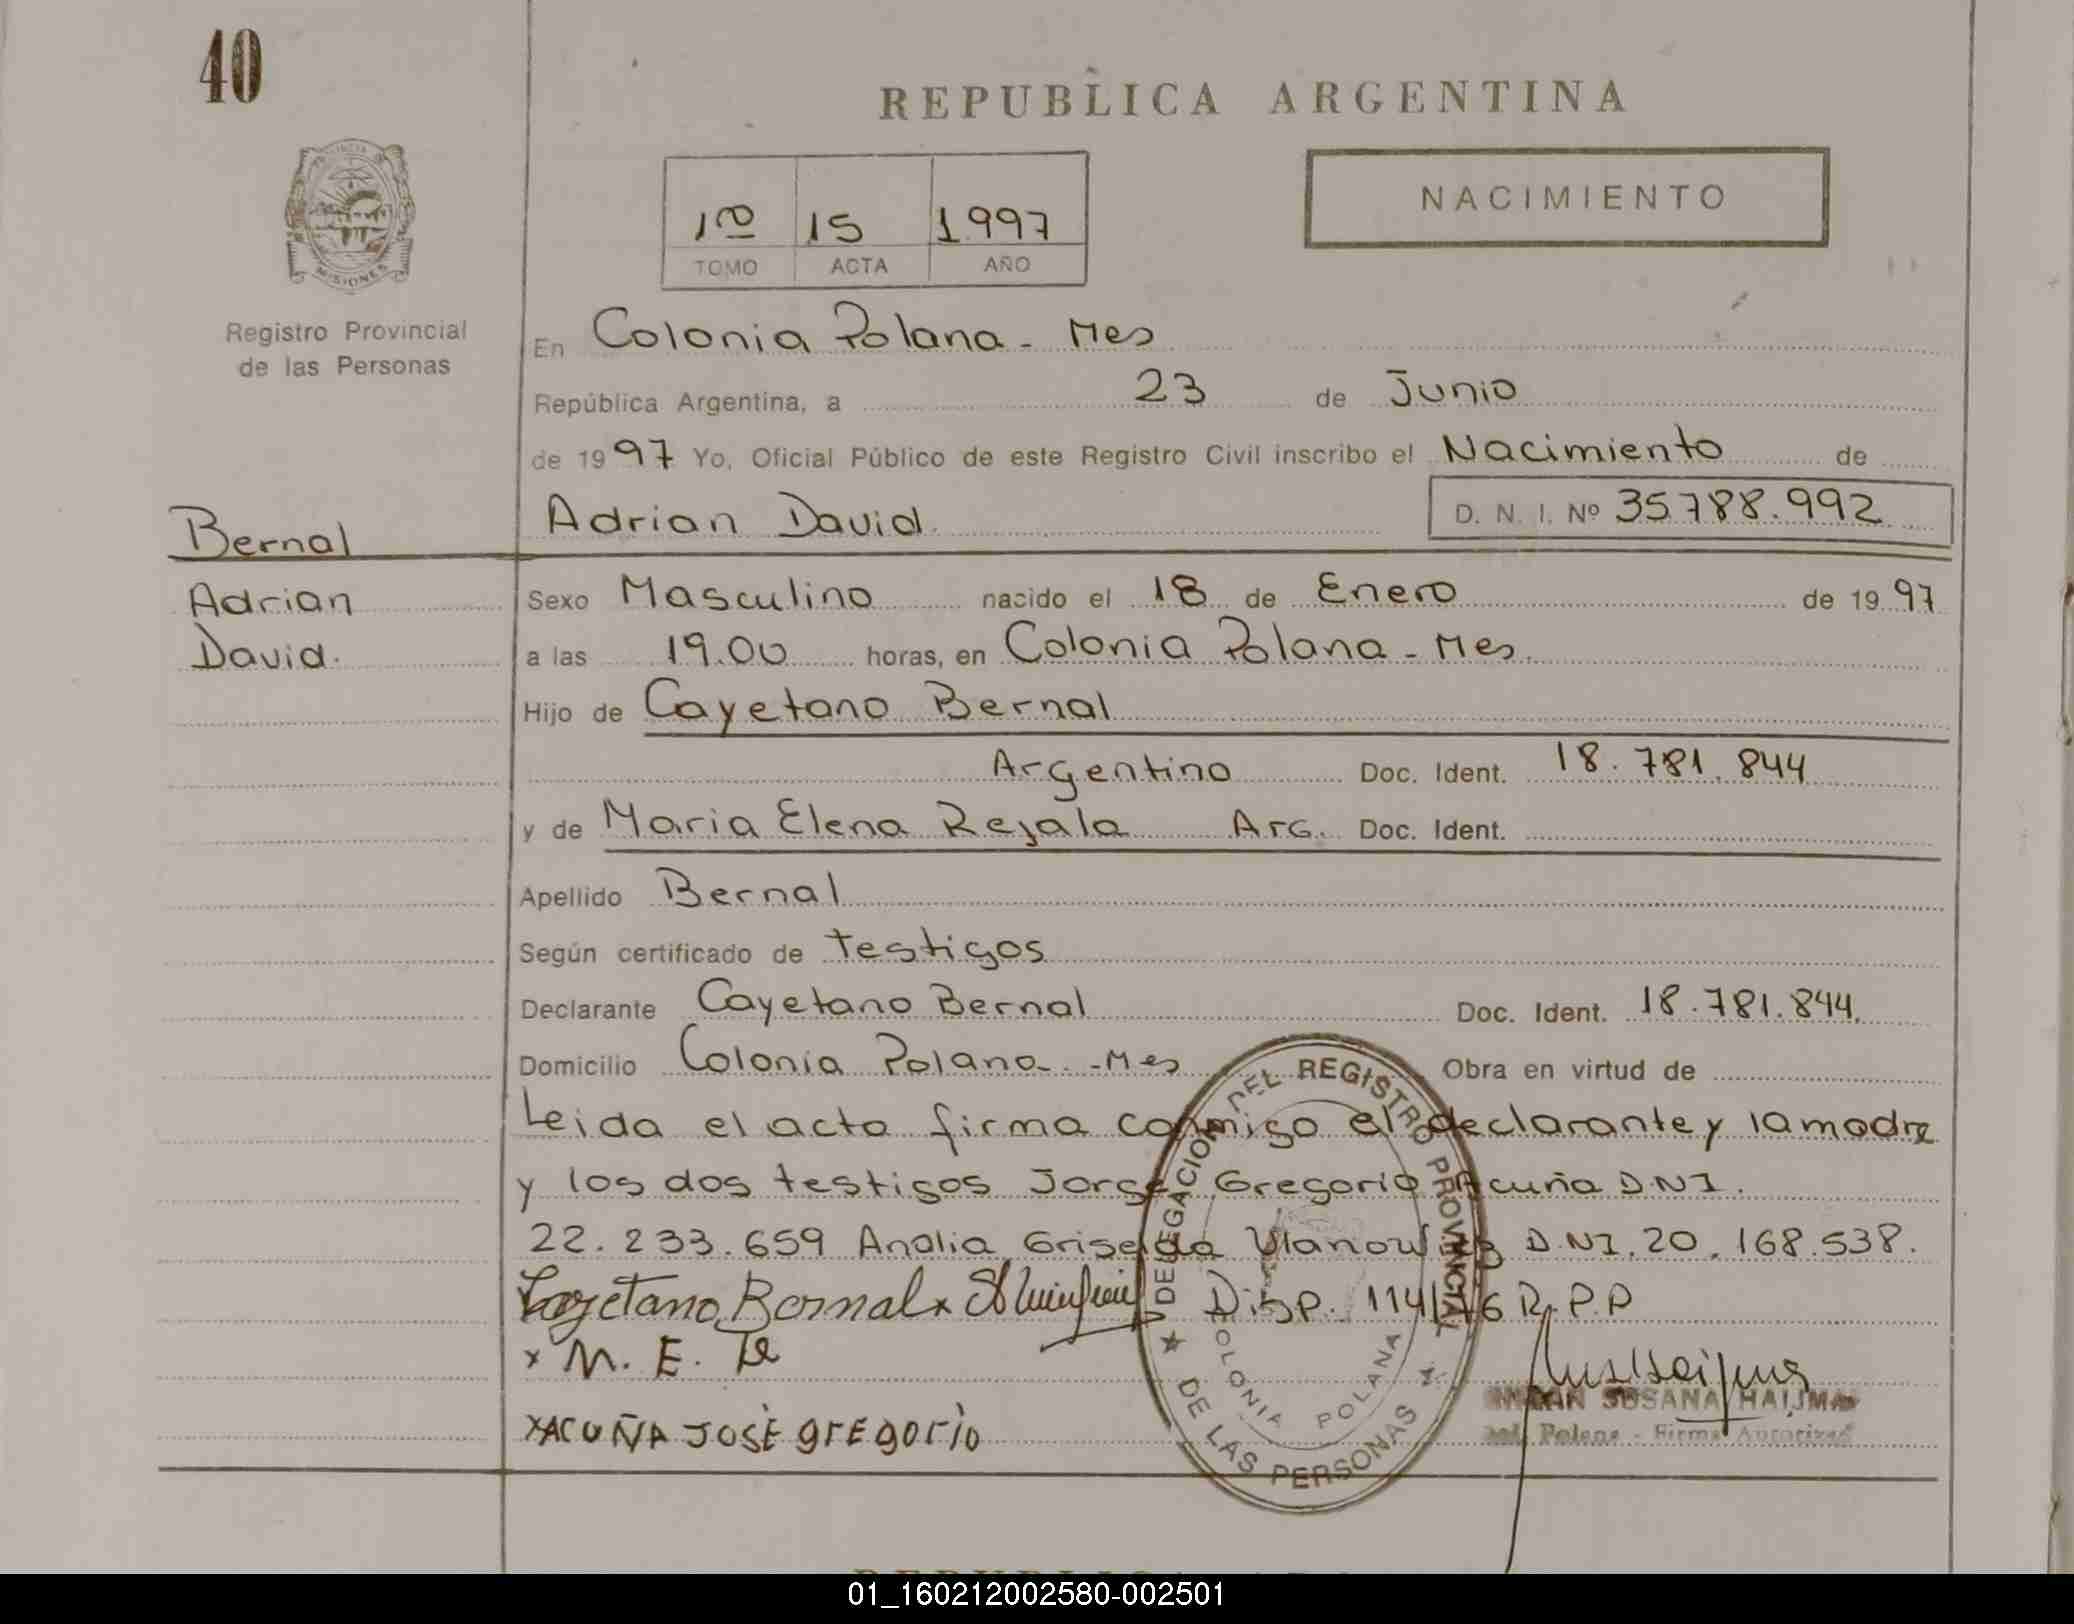 40
REPUBLICA ARGENTINA
NACIMIENTO
1º 15 1997
TOMO ACTA AÑO
MISIONES
Registro Provincial
de las Personas
En Colonia Polana - Mes
República Argentina, a 23 de Junio
de 1997 Yo, Oficial Público de este Registro Civil inscribo el Nacimiento de
Bernal
Adrian David. D. N. I. Nº 35788.992
Adrian
David.
Sexo Masculino nacido el 18 de Enero de 1997
a las 19.00 horas, en Colonia Polana - Mes.
Hijo de Cayetano Bernal
Argentino Doc. Ident. 18.781.844
y de Maria Elena Rejala Arg. Doc. Ident.
Apellido Bernal
Según certificado de testigos
Declarante Cayetano Bernal Doc. Ident. 18.781.844.
Domicilio Colonia Polana - Mes Obra en virtud de
Leida el acta firma conmigo el declarante y la madre
y los dos testigos Jorge Gregorio Acuña D.N.I.
22.233.659 Analia Griselda D.N.I. 20.168.538.
Cayetano Bernal x Disp. 114/76 R.P.P
x M. E.
x ACUÑA JOSÉ GREGORIO
DELEGACION DEL REGISTRO PROVINCIAL
DE LAS PERSONAS
COLONIA POLANA
SUSANA HAIJMA
Col. Polana - Firma Autorizad
01_160212002580-002501